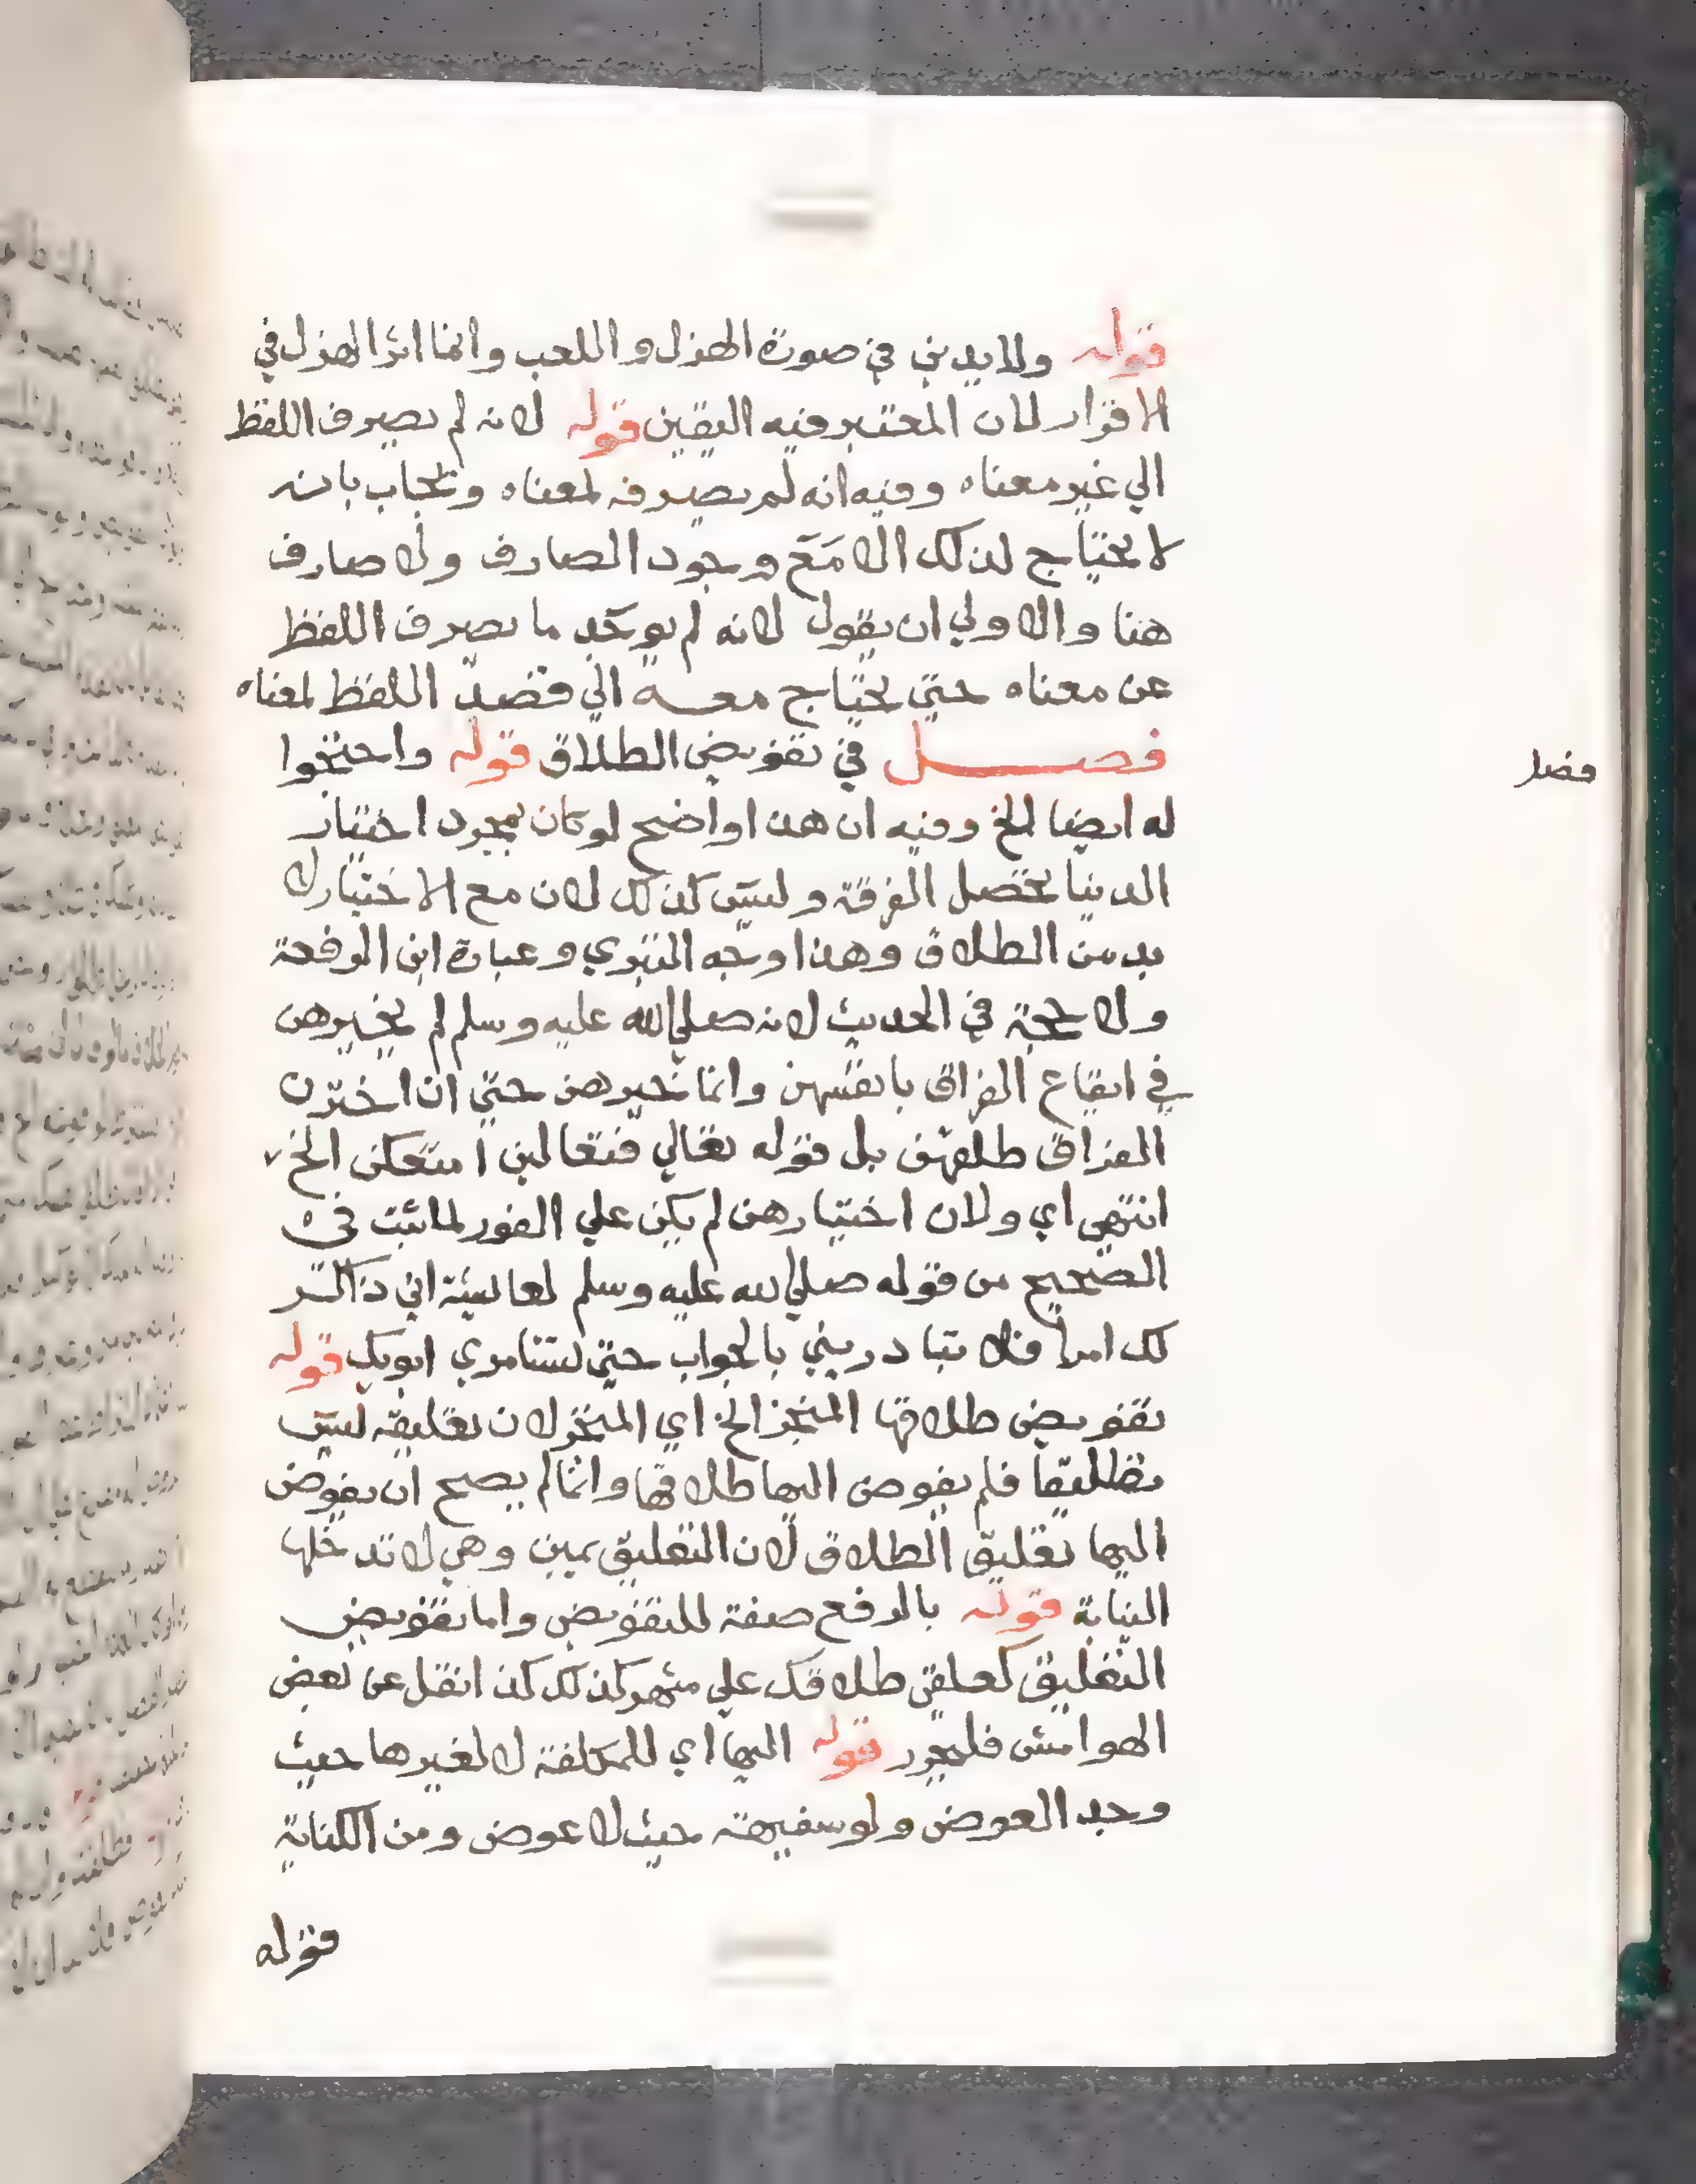 قوله ولا يدين في صورة الهزل واللعب وانما اثر الهزل في
الاقرار لان المعتبر فيه اليقين قوله لانه لم يصرف اللفظ
الي غير معناه وفيه انه لم يصرفه لمعناه ويجاب بانه
لا يحتاج لذلك الا مع وجود الصارف ولا صارف
هنا والاولي ان يقول لانه لم يوجد ما يصرف اللفظ
عن معناه حتي يحتاج معه الي قصد اللفظ لمعناه
فصل في تفويض الطلاق قوله واحتجوا
فصل
له ايضا الخ وفيه ان هذا واضح لو كان بمجرد اختيار
الدنيا تحصل الفرقة وليس كذلك لان مع الاختيار لا
بد من الطلاق وهذا وجه التبري وعبارة ابن الرفعة
ولا حجة في الحديث لانه صلي الله عليه وسلم لم يخيرهن
في ايقاع الفراق بانفسهن وانما خيرهن حتي ان اخترن
الفراق طلقهن بل قوله تعالي فتعالين امتعكن الخ
انتهي اي ولان اختيارهن لم يكن علي الفور لما ثبت في
الصحيح من قوله صلي الله عليه وسلم لعائشة اني ذاكر
لك امرا فلا تبادريني بالجواب حتي تستامري ابويك قوله
تفويض طلاقها المنجز الخ اي المنجز لان تعليقه ليس
تطليقا فلم يفوض اليها طلاقها وانما لم يصح ان يفوض
اليها تعليق الطلاق لان التعليق يمين وهي لا تدخلها
النيابة قوله بالرفع صفة للتفويض واما تفويض
التعليق كعلقي طلاقك علي شهر كذلك كذا نقل عن بعض
الهوامش فليحرر قوله اليها اي للمكلفة لا لغيرها حيث
وجد العوض ولو سفيهة حيث لا عوض ومن الكناية
قوله